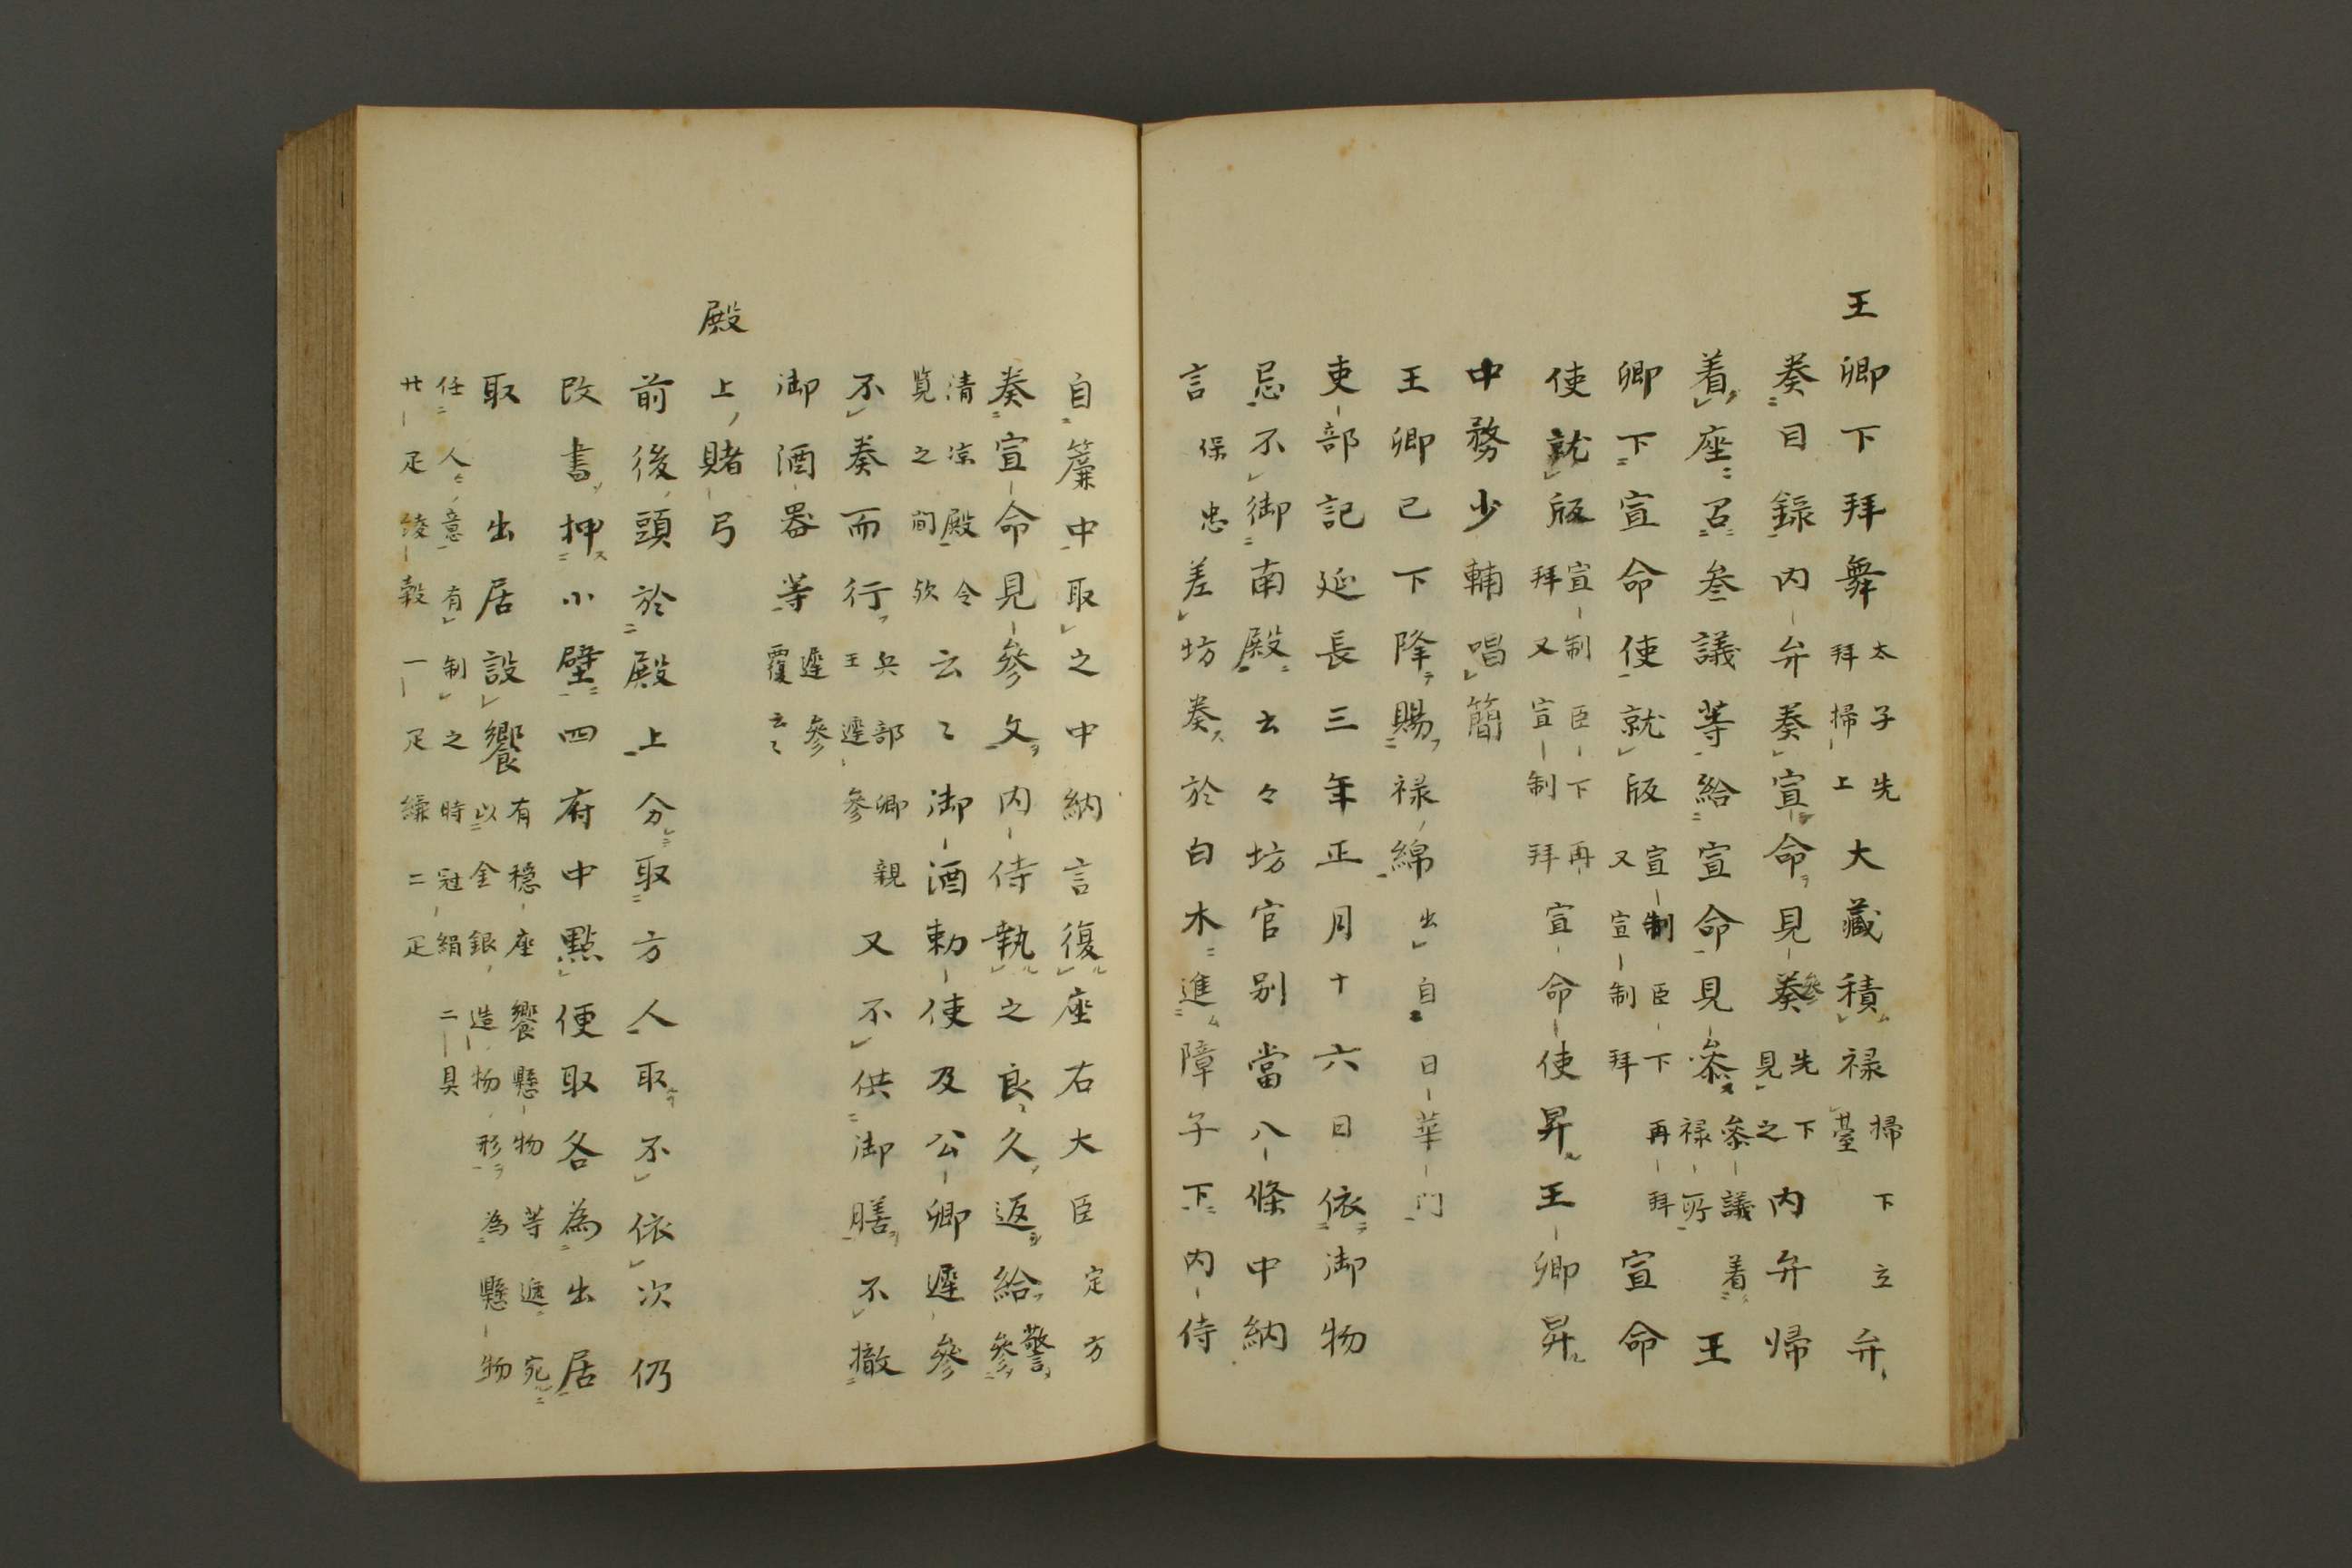 王卿下拜舞太子先拜掃上大藏積禄掃下立臺弁
奏目録内弁奏宣命見參奏先下見之内弁帰
着座召叅議等給宣命見叅叅議着禄所王
卿下宣命使就版宣制臣下再拜又宣制拜宣命
使就版宣制臣下再拜又宣制拜宣命使昇王卿昇
中務少輔唱簡
王卿已下降賜禄綿出自日華門
吏部記延長三年正月十六日依御物
忌不御南殿云々坊官别當八條中納
言保忠差坊奏於白木進障子下内侍
自簾中取之中納言復座右大臣定方
奏宣命見參文内侍執之良久返給警參
清凉殿令覧之間欤云〻御酒勅使及公卿遲參
不奏而行兵部卿親王遲參又不供御膳不撤
御酒器等遲參云〻覆
殿上賭弓
前後頭於殿上分取方人取不依次仍
改書押小壁四府中點便取各為出居
取出居設饗有穏座饗懸物等遞宛以金銀造物形為懸物
任人意有制之時冠絹二具
廿疋綾一疋縑二疋